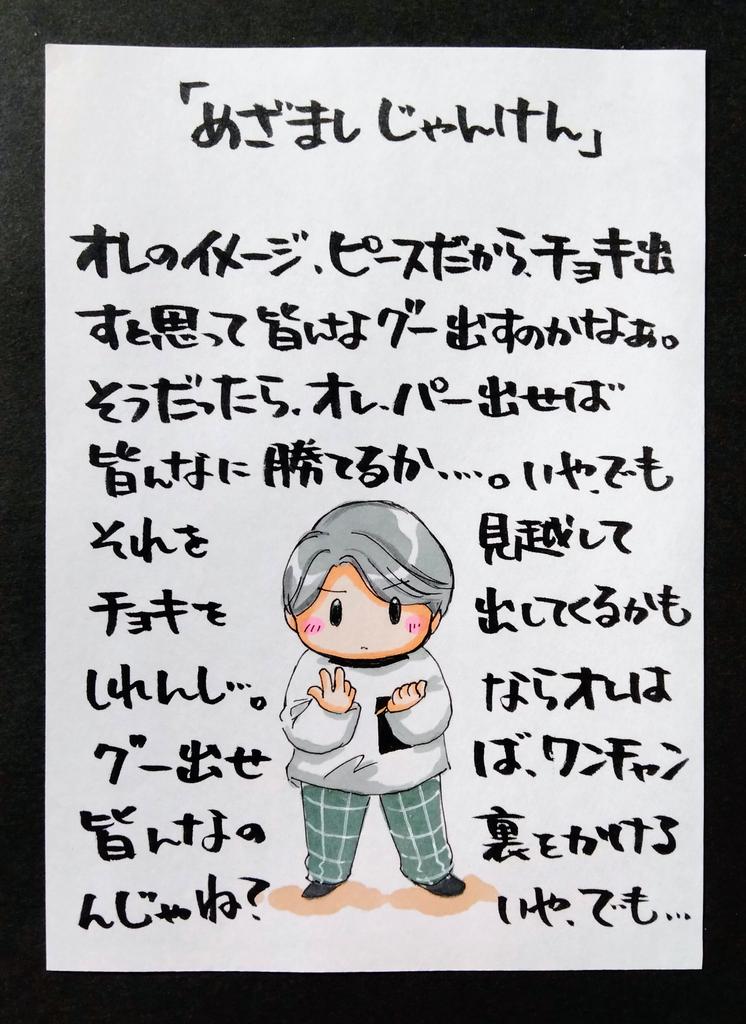 「めざまし じゃんけん」
オレのイメージ、ピースだから、チョキ出
すと思って皆んなグー出すのかなぁ。
そうだったら、オレ、パー出せば
皆んなに勝てるか…。いや、でも
それを 見越して
チョキを 出してくるかも
しれんし…。 ならオレは
グー出せ ば、ワンチャン
皆んなの 裏をかける
んじゃね? いや、でも…